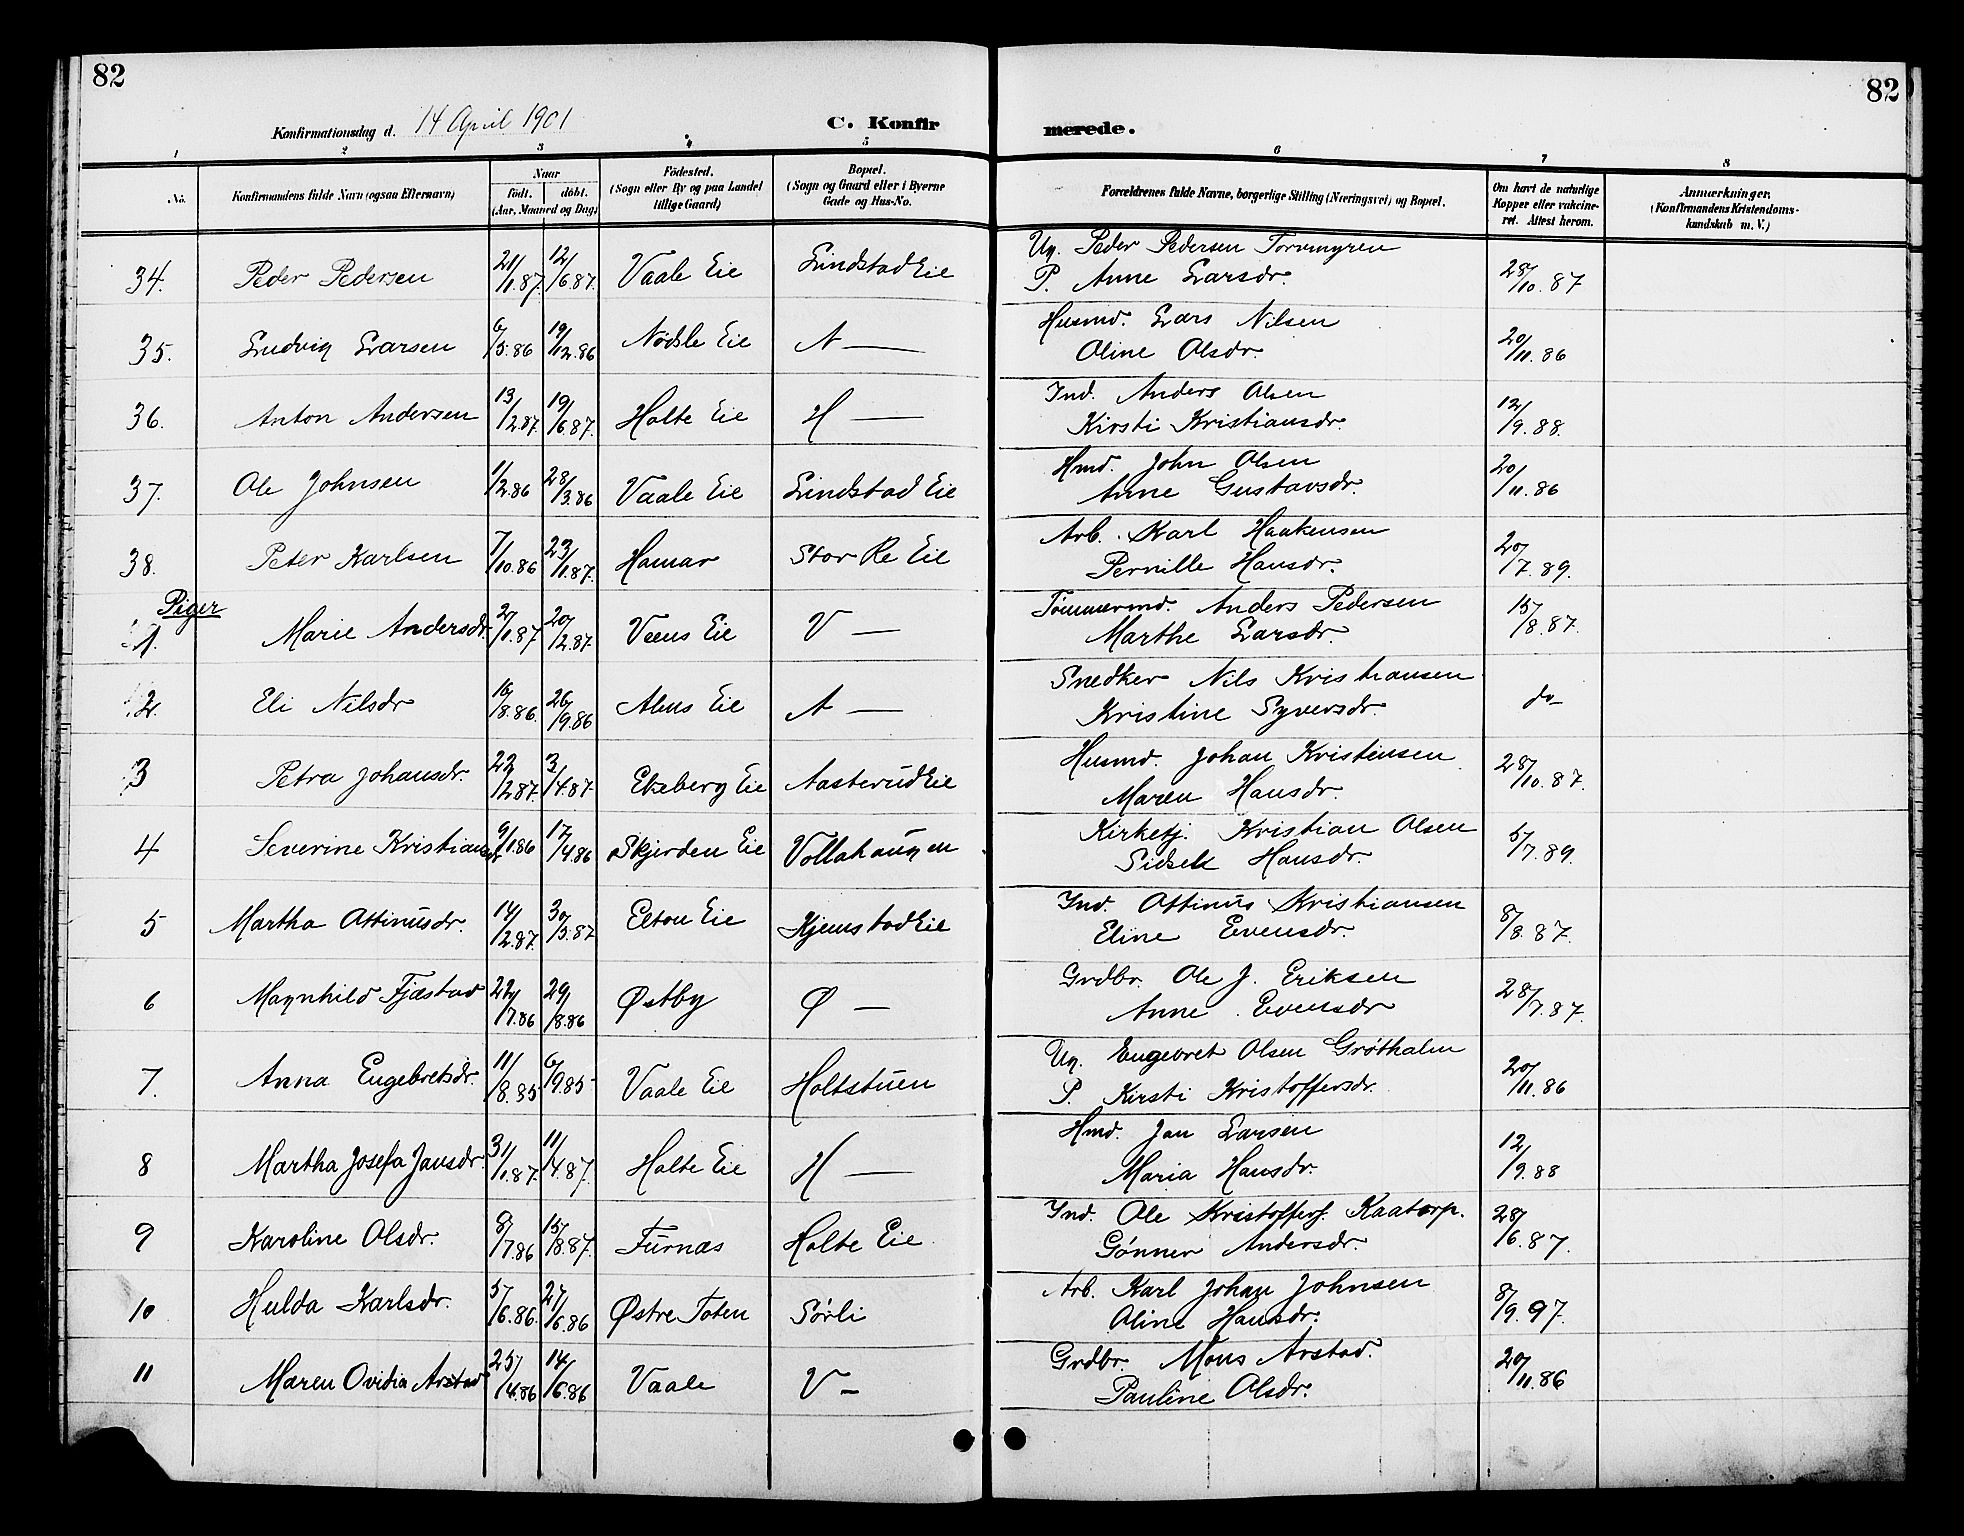 82
82
Konfirmationsdag d. 14 April 1901
C. Konfirmerede.
1 2 3 4 5 6 7 8
No. Konfirmandens fulde Navn (ogsaa Efternavn) Naar født. døbt. (Aar, Maaned og Dag) Fødested. (Sogn eller By og paa Landet tillige Gaard) Bopæl. (Sogn og Gaard eller i Byerne Gade og Hus-No. Forældrenes fulde Navne, borgerlige Stilling (Næringsvei) og Bopæl. Om havt de naturlige Kopper eller vakcineret. Attest herom. Anmærkninger. (Konfirmandens Kristendomskundskab m. V.)
34. Peder Pedersen 21/1.87. 12/6.87. Vaale Eie Lindstad Eie Ug. Peder Pedersen Torvmyren P. Anne Larsdr. 28/10.87
35. Ludvig Larsen 6/5.86 19/12.86 Nødsle Eie N — Husmd. Lars Nilsen Oline Olsdr. 20/11.86
36. Anton Andersen 13/12.87. 19/6.87. Holte Eie H — Ind. Anders Olsen Kirsti Kristiansdr. 12/9.88.
37. Ole Johnsen 1/2.86 28/3.86 Vaale Eie Lindstad Eie Hmd. John Olsen Anne Gustavsdr. 20/11.86
38. Peter Karlsen 7/10.86 23/1.87. Hamar Stor Re Eie Arb. Karl Haakensen Pernille Hansdr. 20/7.89.
Piger
1. Marie Andersdr. 2/1.87 20/2.87. Veens Eie V — Tømmermd. Anders Pedersen Marthe Larsdr. 15/8.87.
2. Eli Nilsdr 16/8.86. 26/9.86 Alms Eie A — Snedker Nils Kristiansen Kristine Syversdr. do
3 Petra Johansdr. 22/2.87. 3/4.87. Ekeberg Eie Aasterud Eie Husmd. Johan Kristensen Maren Hansdr. 28/10.87.
4 Severine Kristiansdr 9/1.86 17/4.86 Skjerden Eie Vollahaugen Kirketj. Kristian Olsen Sidsel Hansdr. 5/7.89.
5 Martha Attinusdr. 14/2.87. 30/5.87 Elton Eie Hjemstad Eie Ind. Attinus Kristiansen Eline Evensdr. 8/8.87.
6 Magnhild Fjæstad 22/7.86 29/8.86 Østby Ø — Grdbr. Ole J. Eriksen Anne Evensdr 28/7.87.
7. Anna Engebretsdr. 11/8.85 6/9.85 Vaale Eie Holtstuen Ug. Engebret Olsen Grøtholm P. Kirsti Kristoffersdr. 20/11.86
8 Martha Josefa Jansdr. 31/1.87. 11/4.87. Holte Eie H — Hmd. Jan Larsen Maria Hansdr. 12/9.88
9 Karoline Olsdr. 8/7.86 15/8.87. Furnæs Holte Eie. Ind. Ole Kristoffers. Kaatorp. Gønner Andersdr. 28/6.87.
10 Hulda Karlsdr. 5/6.86. 27/6.86 Østre Toten Sørli Arb. Karl Johan Johnsen Oline Hansdr. 8/9.97.
11 Maren Ovidia Arstad 25/4.86 14/6.86 Vaale V — Grdbr. Mons Arstad. Pauline Olsdr. 20/11.86